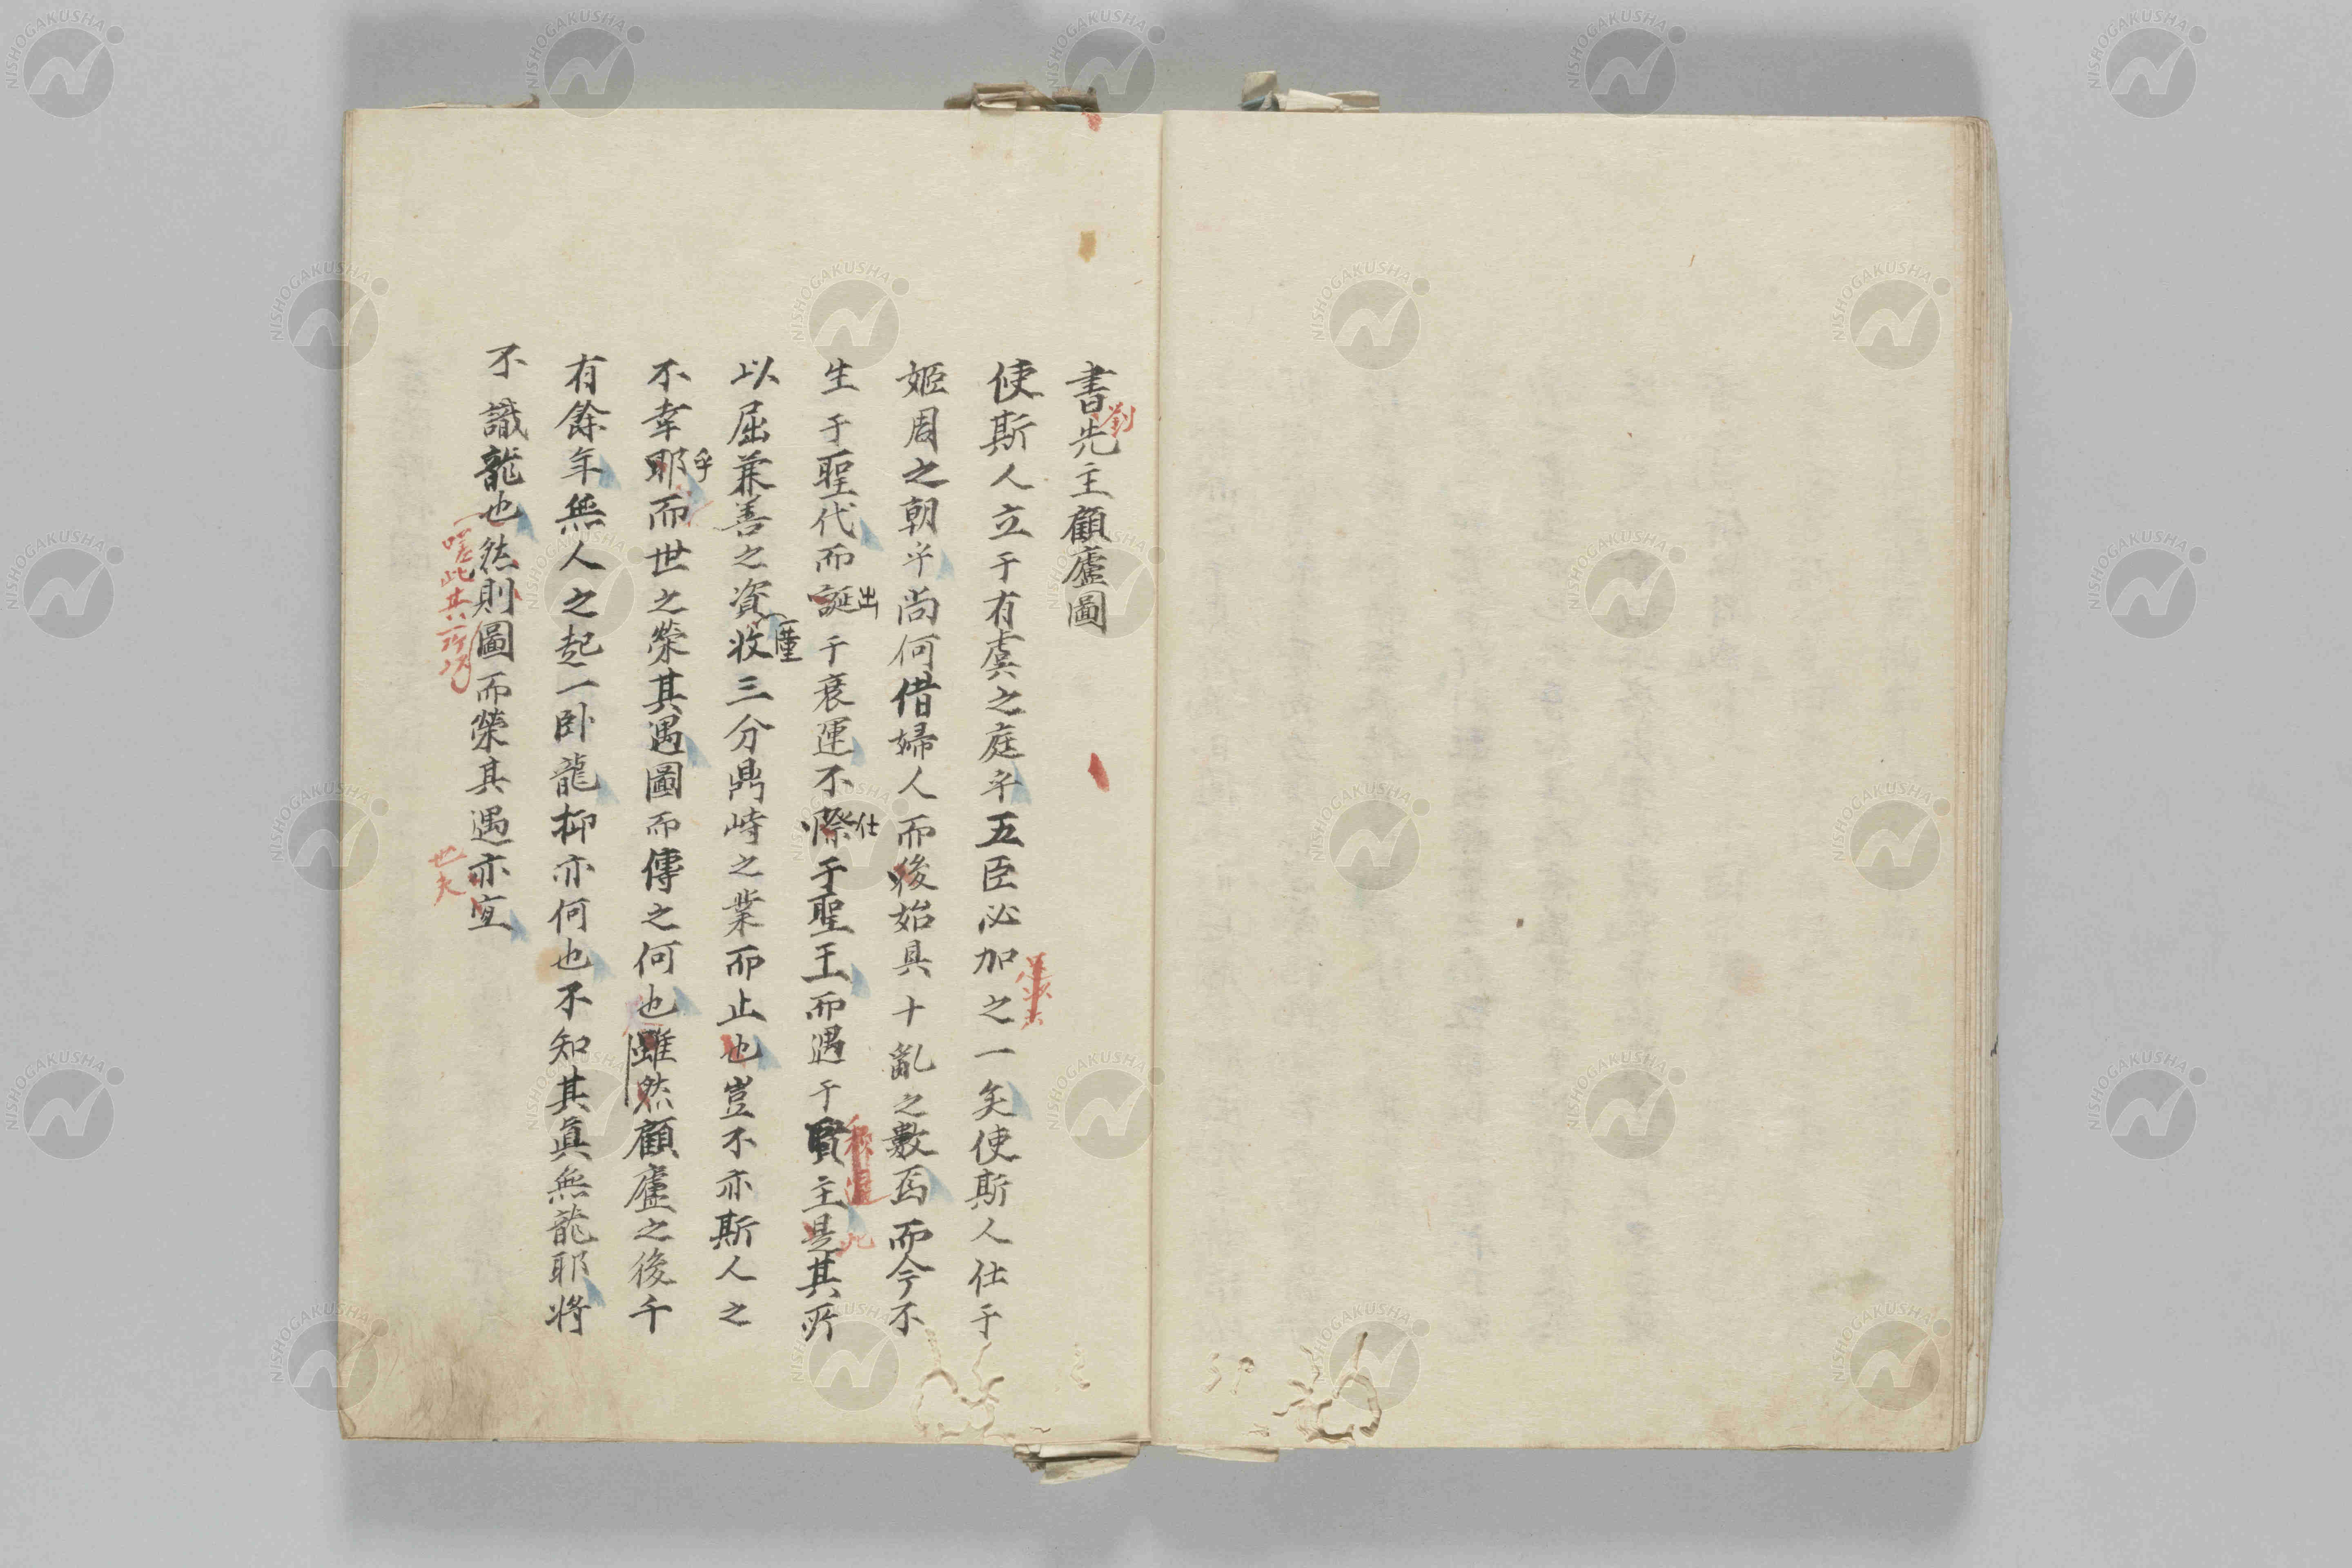 書先主顧廬圖
劉
使斯人立于有虞之庭乎五臣必加之一矣使斯人仕于
姬周之朝乎尚何借婦人而後始具十亂之數焉而今不
生于聖代而誕于衰運不際于聖王而遇于賢主是其所
出
仕
此
以屈兼善之資收三分鼎峙之業而止也豈不亦斯人之
僅
不幸耶而世之榮其遇圖而傳之何也雖然顧廬之後千
乎
有餘年無人之起一臥龍抑亦何也不知其真無龍耶將
不識龍也然則圖而榮其遇亦宜
嗟此其所以
世夫
NISHOGAKUSHA